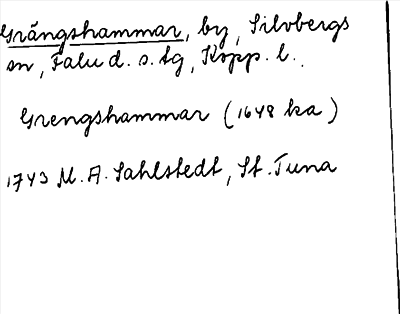 Grängshammar, by, Silvbergs
sn, Falu d. s. tg, Kopp. l.
Grengshammar (1648 ka)
1743 M. A. Sahlstedt, St. Tuna